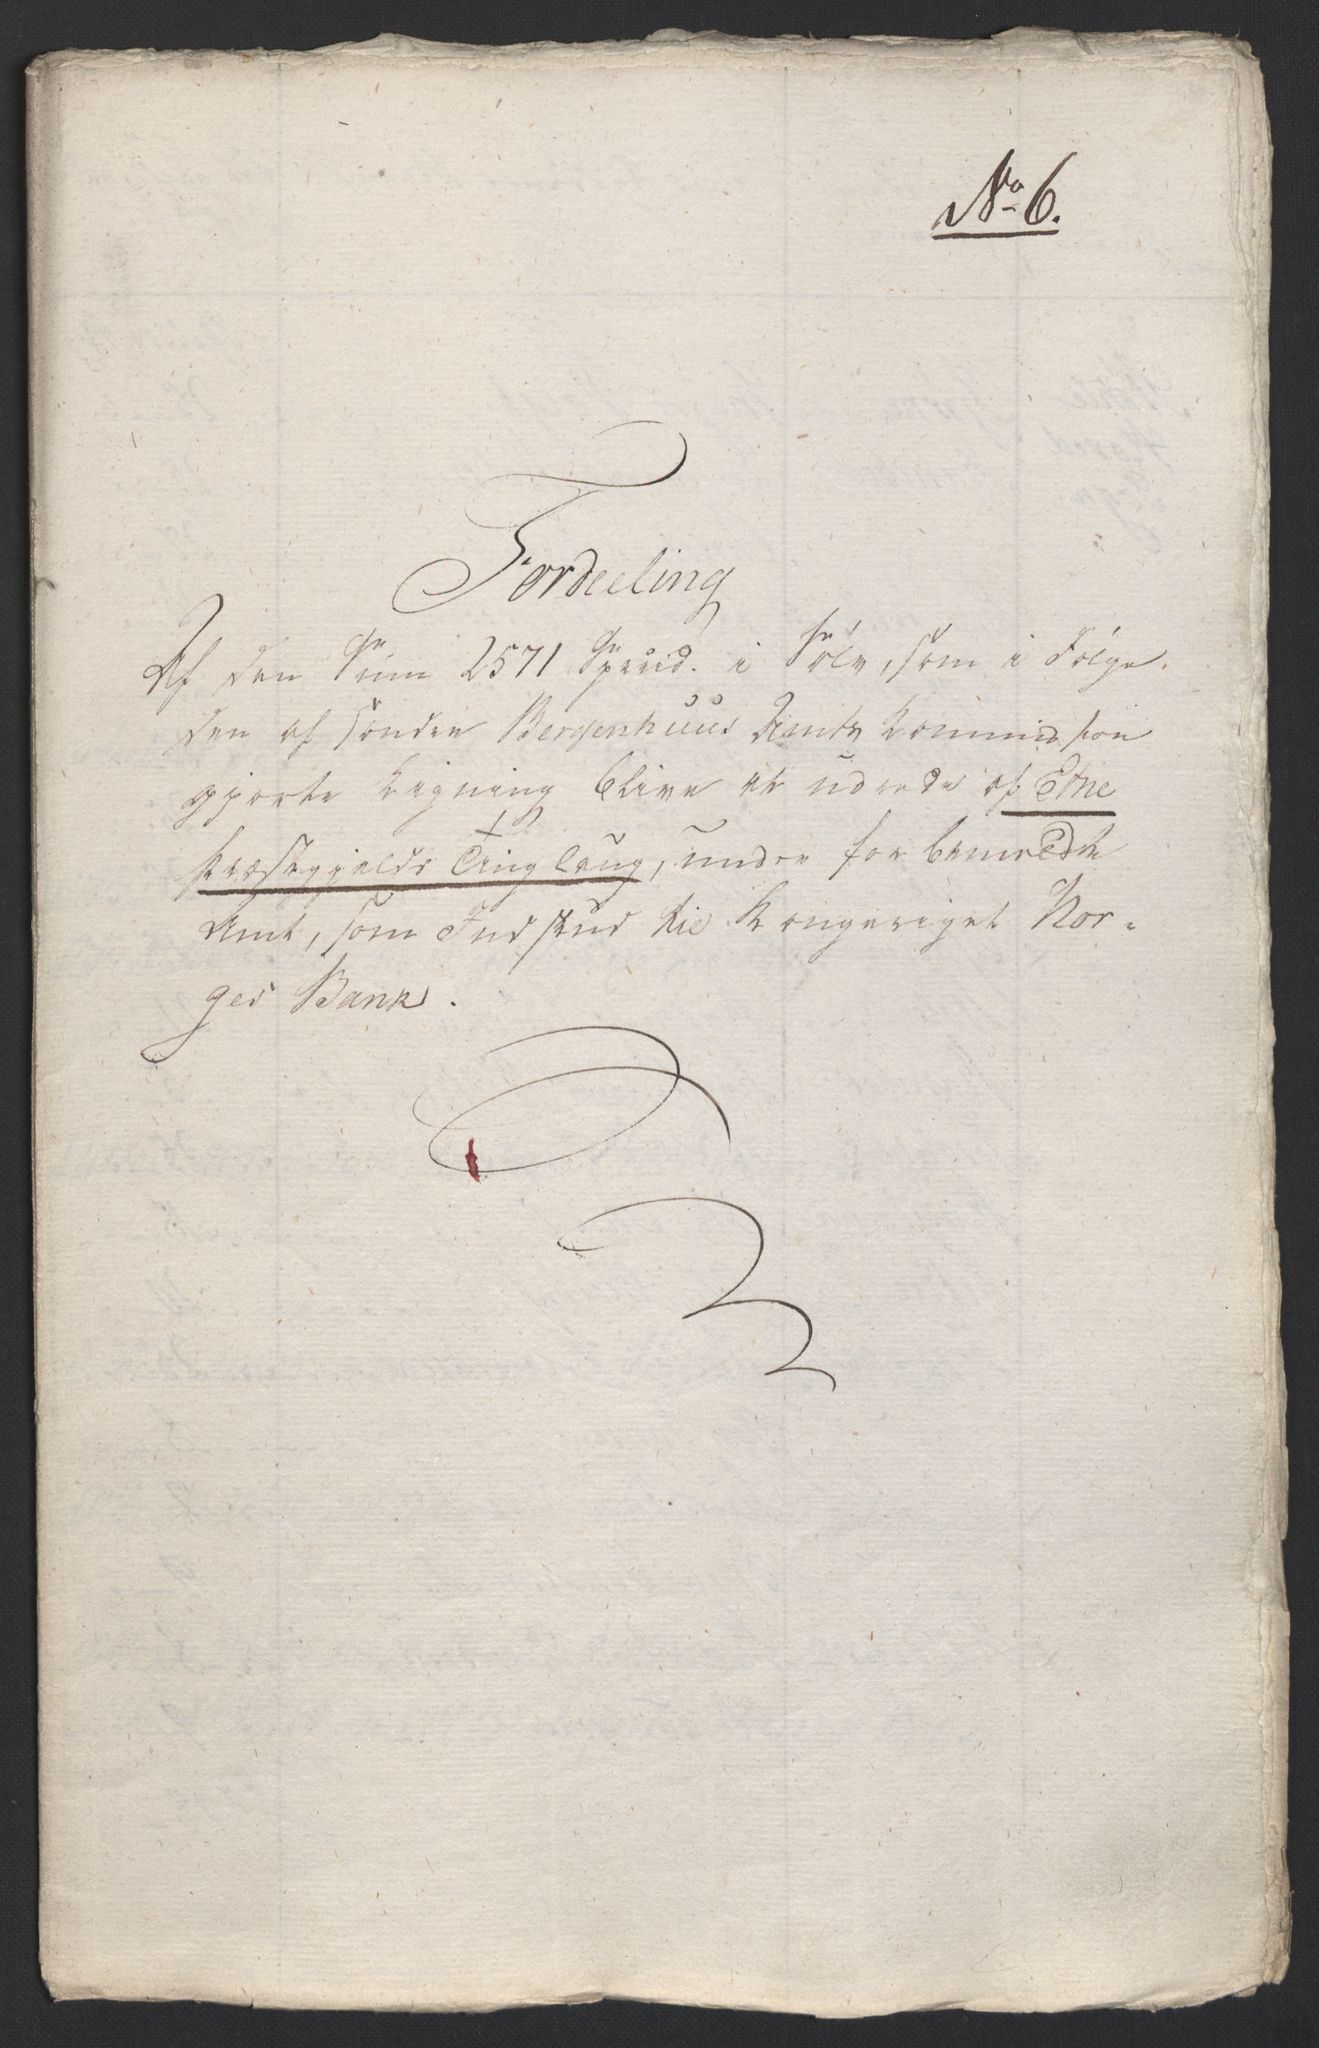 No 6.
Fordeeling
Af den Sum 2571 Spesid. i Sølv, som i Følge
den af søndre Bergenhuus Amts Commission
gjorte Ligning bliver at udrede af Etne
Præstegjelds Tinglaug, under forbemeldte
Amt, som Indskud til Kongeriget Nor-
ges Bank.